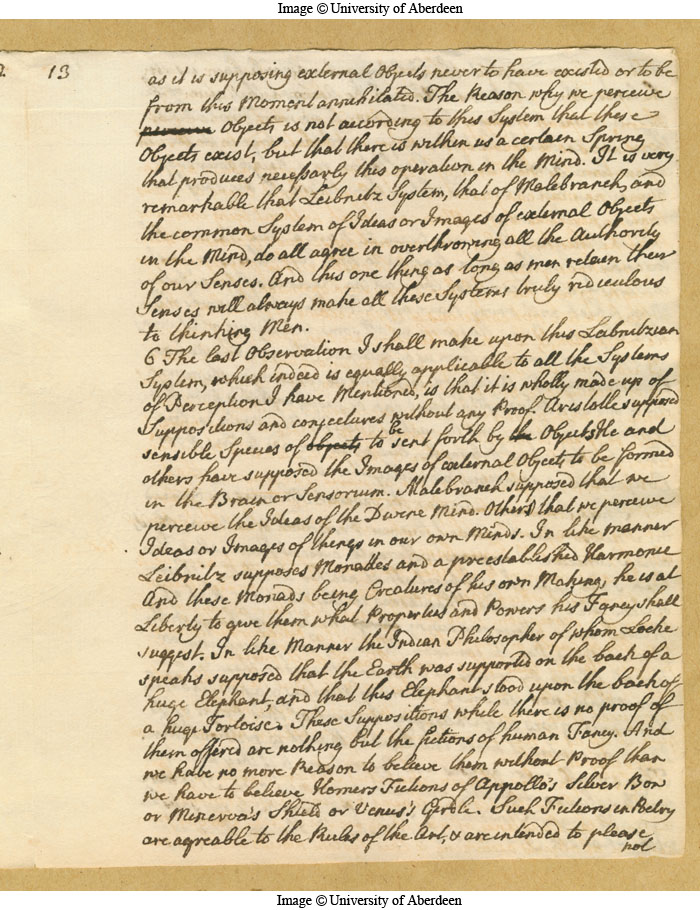 Image © University of Aberdeen
13
as it is supposing external Objects never to have existed or to be
from this Moment annihilated. The Reason why we perceive
Objects is not according to this System that these
Objects exist, but that there is within us a certain Spring
that produces necessarly this operation in the Mind. It is very
remarkable that Leibnitz System, that of Malebranch, and
the common System of Ideas or Images of external Objects
in the Mind, do all agree in overthrowing all the Authority
of our Senses. And this one thing as long as men retain their
Senses will always make all these Systems truly ridiculous
to thinking Men.
6 The last Observation I shall make upon this Leibnitzian
System, which indeed is equally applicable to all the Systems
of Perception I have Mentioned, is that it is wholly made up of
Suppositions and conjectures without any Proof. Aristotle supposed
sensible Species of objects to be sent forth by the Objects. He and
others have supposed the Images of external Objects to be formed
in the Brain or Sensorium. Malebranch supposed that we
perceive the Ideas of the Divine Mind. Others that we perceive
Ideas or Images of things in our own Minds. In like manner
Leibnitz supposes Monades and a preestablished Harmonie
And these Monads being Creatures of his own Making, he is at
Liberty to give them what Properties and Powers his Fancy shall
suggest. In like Manner the Indian Philosopher of whom Locke
speaks supposed that the Earth was supported on the back of a
huge Elephant, and that this Elephant stood upon the back of
a huge Tortoise. These Suppositions while there is no proof of
them offered are nothing but the fictions of human Fancy. And
we have no more Reason to believe them without Proof than
we have to believe Homers Fictions of Appollo's Silver Bow
or Minerva's Shield or Venus's Girdle. Such Fictions in Poetry
are agreable to the Rules of the Art, & are intended to please
not
Image © University of Aberdeen